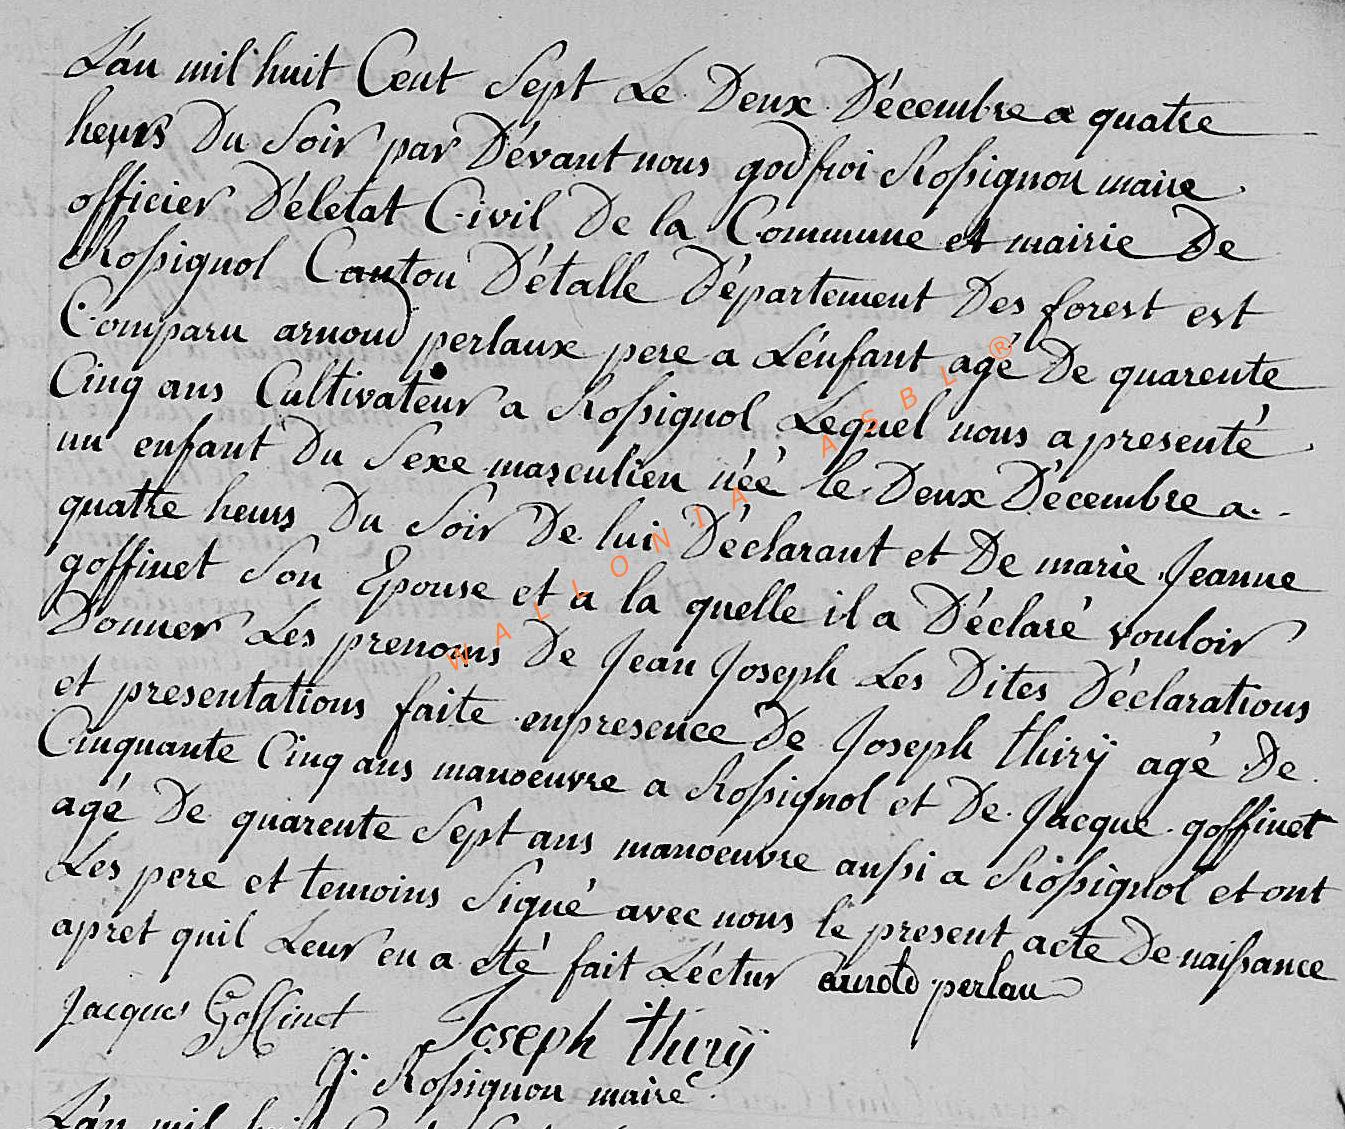 L'an mil huit Cent Sept Le Deux Décembre a quatre
heurs Du Soir par Dévant nous godfroi Rossignon maire
officier D'életat Civil De la Commune et mairie De
Rossignol Canton D'étalle Département Des forest est
Comparu arnoud perlaux pere a L'énfant agé De quarente
Cinq ans Cultivateur a Rossignol Lequel nous a presenté
un enfant Du Sexe masculien néé le Deux Décembre a
quatre heurs Du Soir De lui Déclarant et De marie Jeanne
goffinet Son Epouse et a la quelle il a Déclaré vouloir
Donner Les prenoms De Jean Joseph Les Dites Déclarations
et presentations faite enpresence De Joseph thirÿ agé De
Cinquante Cinq ans manoeuvre a Rossignol et De Jacque goffinet
agé De quarente Sept ans manoeuvre aussi a Rossignol et ont
Les pere et temoins Signé avec nous le present acte De naissance
apret quil Leur en a été fait Léctur arnold perlau
Jacques Goffinet Joseph thirÿ
g: Rossignon maire
L'an mil huit
WALLONIA ASBL ®